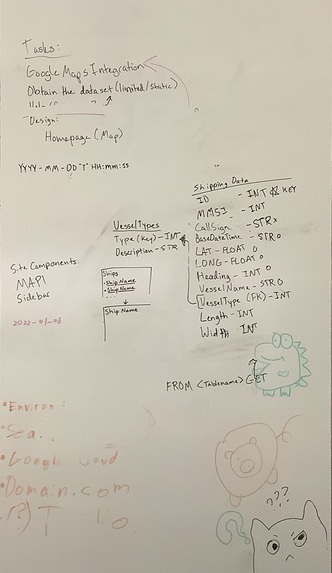 Tasks:
Google Maps Integration
Obtain the dataset (limited/static)
Design:
Homepage (Map)
YYYY-MM-DD'T'HH:mm:ss
Shipping Data
ID - INT KEY
MMSI - INT
CallSign - STR x
BaseDateTime - STR o
LAT - FLOAT o
LONG - FLOAT o
Heading - INT o
VesselName - STR o
VesselType (FK) - INT
Length - INT
Width INT
VesselTypes
Type (Key) - INT
Description - STR
Site Components:
MAPI
Sidebar
Ships
• Ship Name
• Ship Name
...
Ship Name
FROM <Tablename> GET
• Environ
• Google Cloud
• Domain.com
(?) T
???